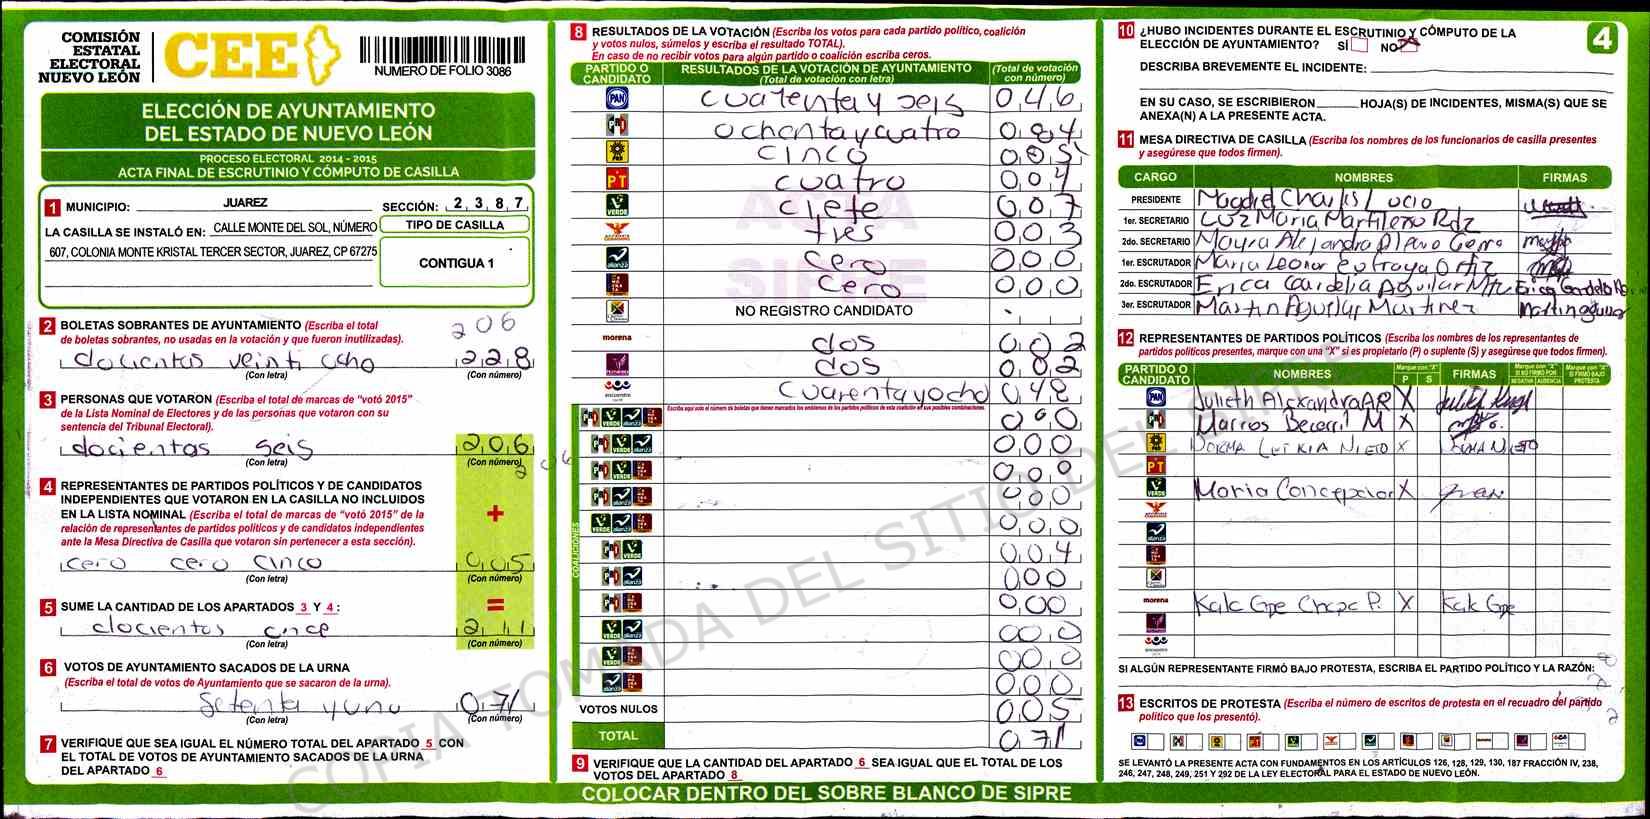 COMISIÓN
ESTATAL
ELECTORAL
NUEVO LEÓN
CEE
NUMERO DE FOLIO 3086
ELECCIÓN DE AYUNTAMIENTO
DEL ESTADO DE NUEVO LEÓN
PROCESO ELECTORAL 2014 - 2015
ACTA FINAL DE ESCRUTINIO Y CÓMPUTO DE CASILLA
1 MUNICIPIO: JUAREZ SECCIÓN: 2 3 8 7
LA CASILLA SE INSTALÓ EN: CALLE MONTE DEL SOL, NÚMERO
607, COLONIA MONTE KRISTAL TERCER SECTOR, JUAREZ, CP 67275
TIPO DE CASILLA
CONTIGUA 1
2 BOLETAS SOBRANTES DE AYUNTAMIENTO (Escriba el total 206
de boletas sobrantes, no usadas en la votación y que fueron inutilizadas).
docientos veinti ocho 228
(Con letra) (Con número)
3 PERSONAS QUE VOTARON (Escriba el total de marcas de "votó 2015"
de la Lista Nominal de Electores y de las personas que votaron con su
sentencia del Tribunal Electoral).
docientos seis 206
(Con letra) (Con número)
206
4 REPRESENTANTES DE PARTIDOS POLÍTICOS Y DE CANDIDATOS
INDEPENDIENTES QUE VOTARON EN LA CASILLA NO INCLUIDOS
EN LA LISTA NOMINAL (Escriba el total de marcas de "votó 2015" de la
relación de representantes de partidos políticos y de candidatos independientes
ante la Mesa Directiva de Casilla que votaron sin pertenecer a esta sección).
+
cero cero cinco 005
(Con letra) (Con número)
5 SUME LA CANTIDAD DE LOS APARTADOS 3 Y 4 :
=
docientos once 211
(Con letra) (Con número)
6 VOTOS DE AYUNTAMIENTO SACADOS DE LA URNA
(Escriba el total de votos de Ayuntamiento que se sacaron de la urna).
Setenta y uno 071
(Con letra) (Con número)
7 VERIFIQUE QUE SEA IGUAL EL NÚMERO TOTAL DEL APARTADO 5 CON
EL TOTAL DE VOTOS DE AYUNTAMIENTO SACADOS DE LA URNA
DEL APARTADO 6
8 RESULTADOS DE LA VOTACIÓN (Escriba los votos para cada partido político, coalición
y votos nulos, súmelos y escriba el resultado TOTAL).
En caso de no recibir votos para algún partido o coalición escriba ceros.
PARTIDO O CANDIDATO RESULTADOS DE LA VOTACIÓN DE AYUNTAMIENTO (Total de votación con letra) (Total de votación con número)
PAN cuatenta y seis 046
PRI ochenta y cuatro 084
PRD cinco 005
PT cuatro 004
VERDE ciete 007
tres 003
alianza cero 000
cero 000
NO REGISTRO CANDIDATO
morena dos 002
dos 002
encuentro cuarenta y ocho 048
COALICIONES
Escriba aquí solo el número de boletas que tienen marcados los emblemas de los partidos políticos de esta coalición en sus posibles combinaciones.
PRI VERDE alianza 000
PRI VERDE alianza 000
PRI VERDE 000
PRI alianza 000
VERDE alianza 000
PRI VERDE 004
PRI alianza 000
PRI 000
VERDE alianza 000
VERDE 000
alianza 000
VOTOS NULOS 005
TOTAL 071
9 VERIFIQUE QUE LA CANTIDAD DEL APARTADO 6 SEA IGUAL QUE EL TOTAL DE LOS
VOTOS DEL APARTADO 8
COLOCAR DENTRO DEL SOBRE BLANCO DE SIPRE
ACTA
SIPRE
COPIA TOMADA DEL SITIO DEL SIPRE
4
10 ¿HUBO INCIDENTES DURANTE EL ESCRUTINIO Y CÓMPUTO DE LA
ELECCIÓN DE AYUNTAMIENTO? SÍ NO X
DESCRIBA BREVEMENTE EL INCIDENTE:
EN SU CASO, SE ESCRIBIERON HOJA(S) DE INCIDENTES, MISMA(S) QUE SE
ANEXA(N) A LA PRESENTE ACTA.
11 MESA DIRECTIVA DE CASILLA (Escriba los nombres de los funcionarios de casilla presentes
y asegúrese que todos firmen).
CARGO NOMBRES FIRMAS
PRESIDENTE Lucio
1er. SECRETARIO Luz Maria Rdz
2do. SECRETARIO Mayra Alejandra
1er. ESCRUTADOR Maria Leonor Ortiz
2do. ESCRUTADOR Erica Aguilar Erica
3er. ESCRUTADOR Martin Aguilar Martinez Martin Aguilar
12 REPRESENTANTES DE PARTIDOS POLÍTICOS (Escriba los nombres de los representantes de
partidos políticos presentes, marque con una "X" si es propietario (P) o suplente (S) y asegúrese que todos firmen).
PARTIDO O CANDIDATO NOMBRES Marque con "X" P S FIRMAS Marque con "X" SI NO FIRMÓ POR NEGATIVA AUSENCIA Marque con "X" SI FIRMÓ BAJO PROTESTA
PAN Julieth Alexandra AR X
PRI Marcos Becerril M X
PRD NORMA NIETO X NIETO
PT
VERDE Maria Concepcion X
morena X
SI ALGÚN REPRESENTANTE FIRMÓ BAJO PROTESTA, ESCRIBA EL PARTIDO POLÍTICO Y LA RAZÓN:
13 ESCRITOS DE PROTESTA (Escriba el número de escritos de protesta en el recuadro del partido
político que los presentó).
SE LEVANTÓ LA PRESENTE ACTA CON FUNDAMENTOS EN LOS ARTÍCULOS 126, 128, 129, 130, 187 FRACCIÓN IV, 238,
246, 247, 248, 249, 251 Y 292 DE LA LEY ELECTORAL PARA EL ESTADO DE NUEVO LEÓN.